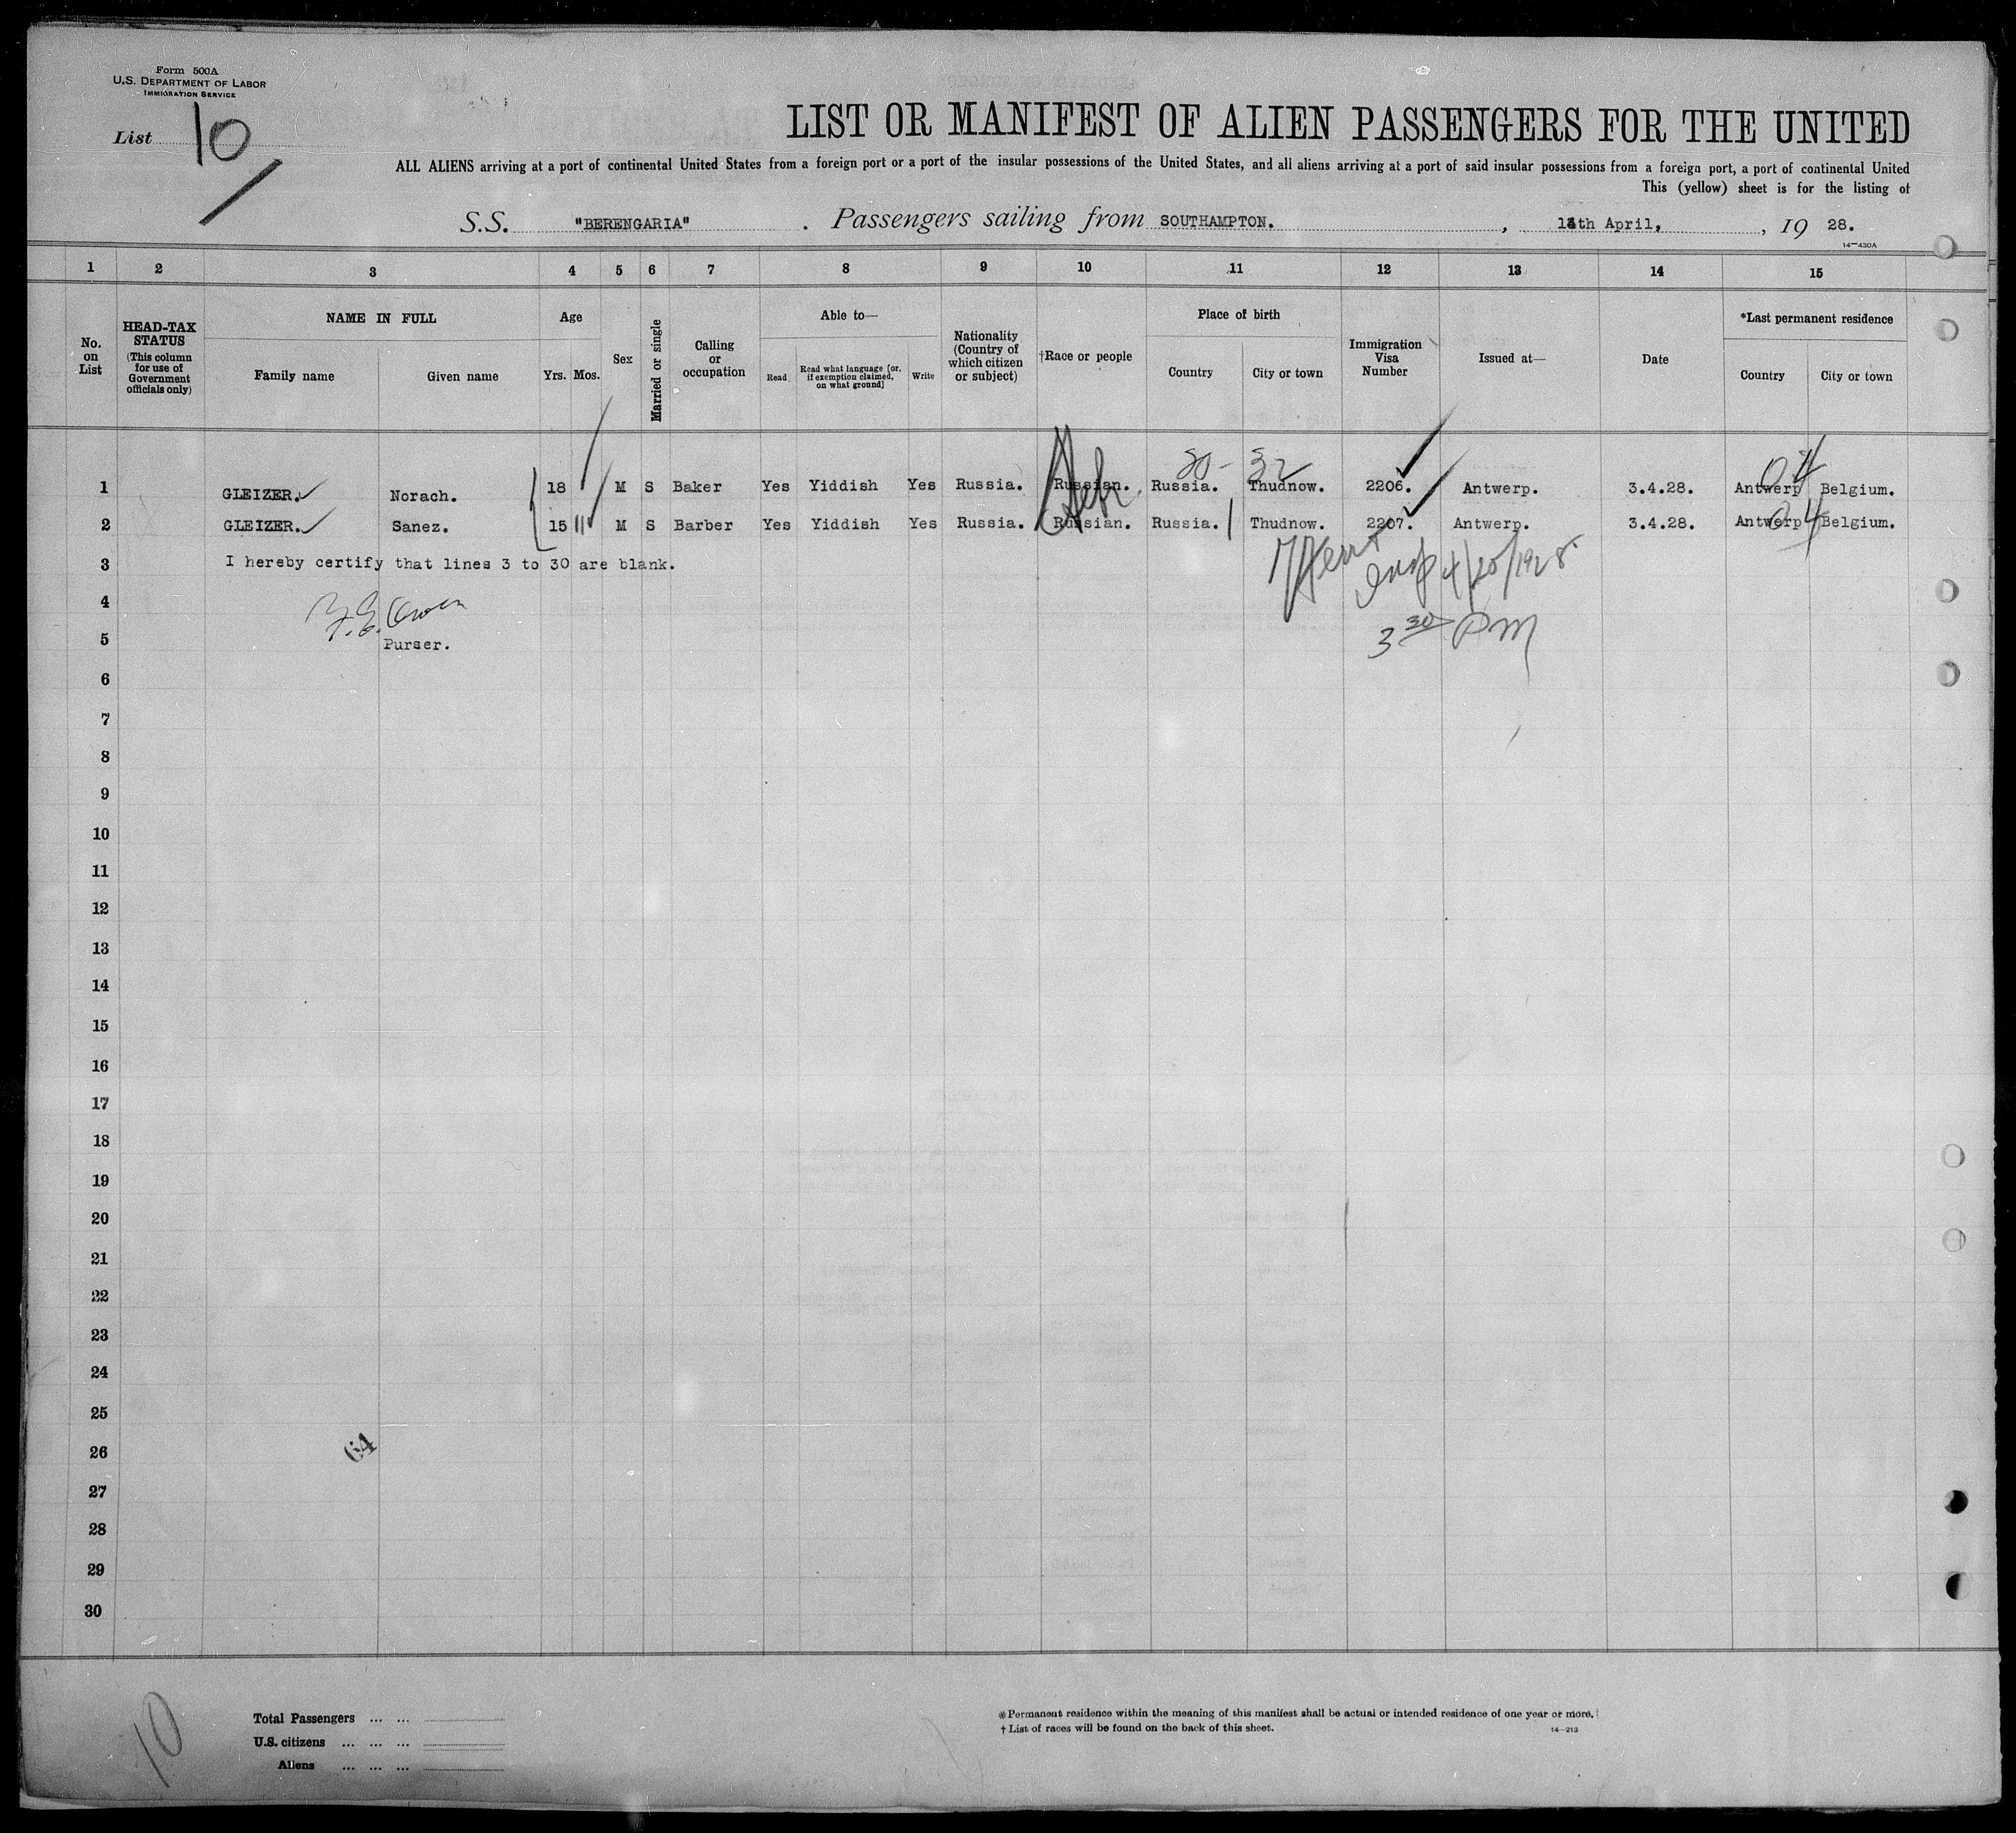 Form 500A
U.S. DEPARTMENT OF LABOR
IMMIGRATION SERVICE
List 10
LIST OR MANIFEST OF ALIEN PASSENGERS FOR THE UNITED
ALL ALIENS arriving at a port of continental United States from a foreign port or a port of the insular possessions of the United States, and all aliens arriving at a port of said insular possessions from a foreign port, a port of continental United
This (yellow) sheet is for the listing of
S.S. "BERENGARIA" . Passengers sailing from SOUTHAMPTON. , April, , 19 28.
14-430A
1 2 3 4 5 6 7 8 9 10 11 12 13 14 15
No. on List
HEAD-TAX STATUS
(This column for use of Government officials only)
NAME IN FULL
Family name Given name
Age
Yrs. Mos.
Sex
Married or single
Calling or occupation
Able to—
Read Read what language [or, if exemption claimed, on what ground] Write
Nationality (Country of which citizen or subject)
†Race or people
Place of birth
Country City or town
Immigration Visa Number
Issued at—
Date
*Last permanent residence
Country City or town
30- 32
1 GLEIZER. Norach. 18 M S Baker Yes Yiddish Yes Russia. Russian. Hebr Russia. Thudnow. 2206. Antwerp. 3.4.28. Antwerp Belgium.
2 GLEIZER. Sanez. 15 11 M S Barber Yes Yiddish Yes Russia. Russian. Russia. Thudnow. 2207. Antwerp. 3.4.28. Antwerp Belgium.
3 I hereby certify that lines 3 to 30 are blank.
Insp 4/20/1928
4
3 30 PM
5 Purser.
6
7
8
9
10
11
12
13
14
15
16
17
18
19
20
21
22
23
24
25
26
64
27
28
29
30
10
Total Passengers ... ...
U.S. citizens ... ... ...
Aliens ... ... ...
* Permanent residence within the meaning of this manifest shall be actual or intended residence of one year or more.
† List of races will be found on the back of this sheet.
14-213